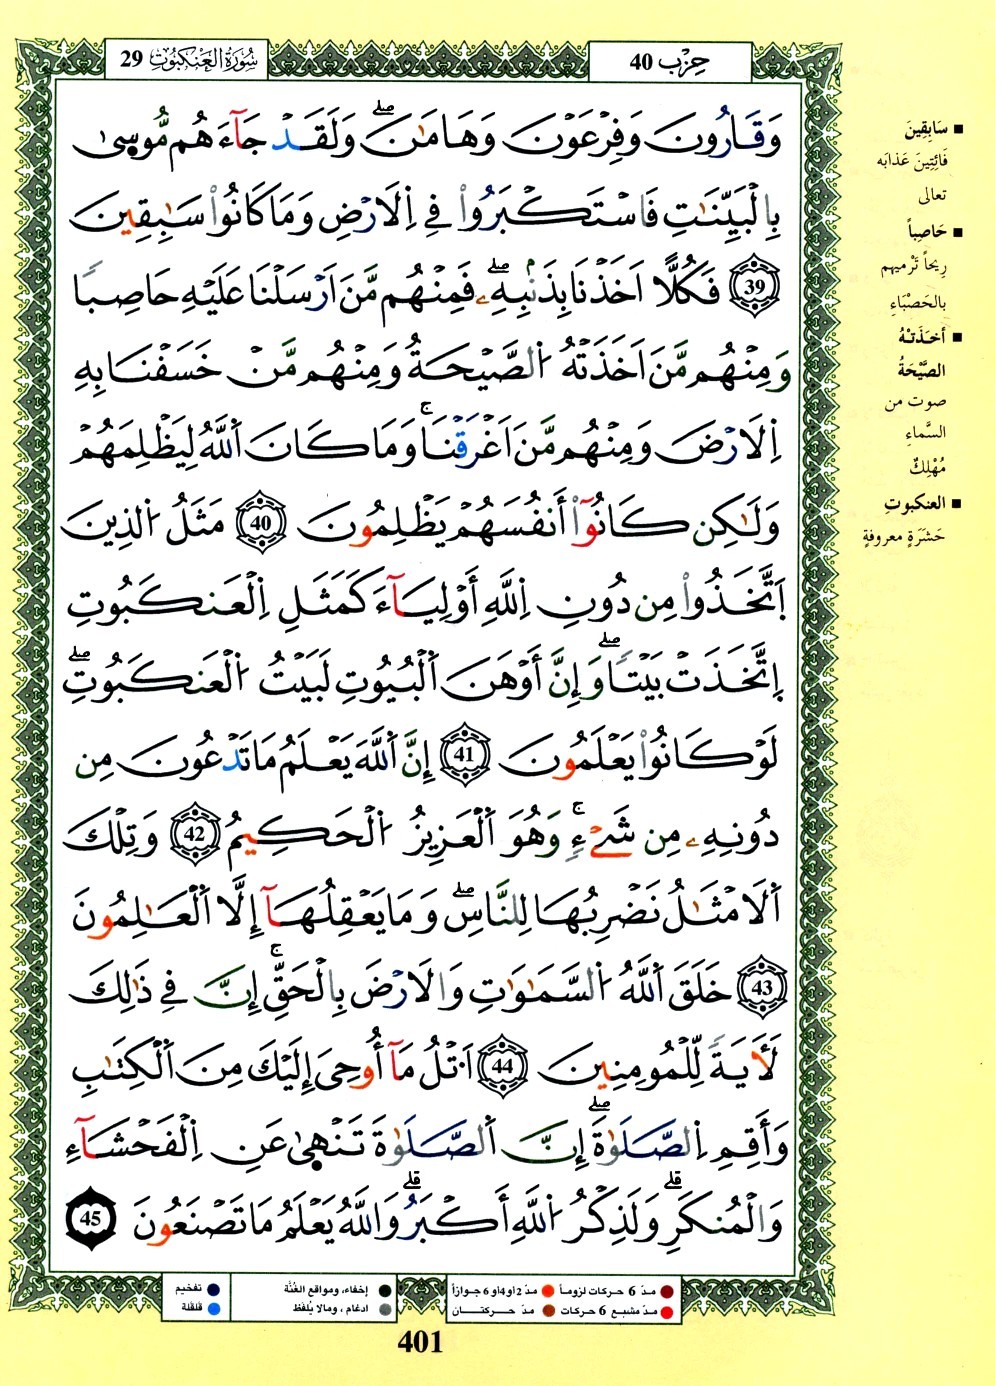 حِزْب 40
سُورَةُ الْعَنكَبُوتِ 29
وَقَٰرُونَ وَفِرْعَوْنَ وَهَامَٰنَۖ وَلَقَدْ جَآءَهُم مُّوسىٰ
بِالْبَيِّنَٰتِ فَاسْتَكْبَرُواْ فِے اِ۬لَارْضِ وَمَا كَانُواْ سَٰبِقِينَ
39 فَكُلّاً اَخَذْنَا بِذَنۢبِهِۦۖ فَمِنْهُم مَّنَ اَرْسَلْنَا عَلَيْهِ حَاصِباً
وَمِنْهُم مَّنَ اَخَذَتْهُ اُ۬لصَّيْحَةُ وَمِنْهُم مَّنْ خَسَفْنَا بِهِ
اِ۬لَارْضَ وَمِنْهُم مَّنَ اَغْرَقْنَاۚ وَمَا كَانَ اَ۬للَّهُ لِيَظْلِمَهُمْ
وَلَٰكِن كَانُوٓاْ أَنفُسَهُمْ يَظْلِمُونَ 40 مَثَلُ اُ۬لذِينَ
اَ۪تَّخَذُواْ مِن دُونِ اِ۬للَّهِ أَوْلِيَآءَ كَمَثَلِ اِ۬لْعَنكَبُوتِ
اِ۪تَّخَذَتْ بَيْتاًۖ وَإِنَّ أَوْهَنَ اَ۬لْبُيُوتِ لَبَيْتُ اُ۬لْعَنكَبُوتِۖ
لَوْ كَانُواْ يَعْلَمُونَ 41 إِنَّ اَ۬للَّهَ يَعْلَمُ مَا تَدْعُونَ مِن
دُونِهِۦ مِن شَےْءٖۚ وَهُوَ اَ۬لْعَزِيزُ اُ۬لْحَكِيمُ 42 وَتِلْكَ
اَ۬لَامْثَٰلُ نَضْرِبُهَا لِلنَّاسِۖ وَمَا يَعْقِلُهَآ إِلَّا اَ۬لْعَٰلِمُونَ
43 خَلَقَ اَ۬للَّهُ اُ۬لسَّمَٰوَٰتِ وَالَارْضَ بِالْحَقِّۚ إِنَّ فِے ذَٰلِكَ
لَأٓيَةً لِّلْمُومِنِينَ 44 اَ۟تْلُ مَآ أُوحِيَ إِلَيْكَ مِنَ اَ۬لْكِتَٰبِ
وَأَقِمِ اِ۬لصَّلَوٰةَۖ إِنَّ اَ۬لصَّلَوٰةَ تَنْهىٰ عَنِ اِ۬لْفَحْشَآءِ
وَالْمُنكَرِۗ وَلَذِكْرُ اُ۬للَّهِ أَكْبَرُۗ وَاللَّهُ يَعْلَمُ مَا تَصْنَعُونَ 45
■ سَابِقِينَ
فَائِتِينَ عَذابَه
تعالى
■ حَاصِباً
رِيحاً تَرْميهم
بالحَصْبَاءِ
■ أخَذَتْهُ
الصَّيْحَةُ
صوت من
السَّماءِ
مُهْلِكٌ
■ العنكبوتِ
حَشَرَةٍ معروفةٍ
مدّ 6 حركات لزوماً مدّ 2 أو 4 أو 6 جوازاً إخفاء، ومواقع الغُنَّة تفخيم
مدّ مشبع 6 حركات مدّ حركتان ادغام ، ومالا يُلفَظ قلقلة
401